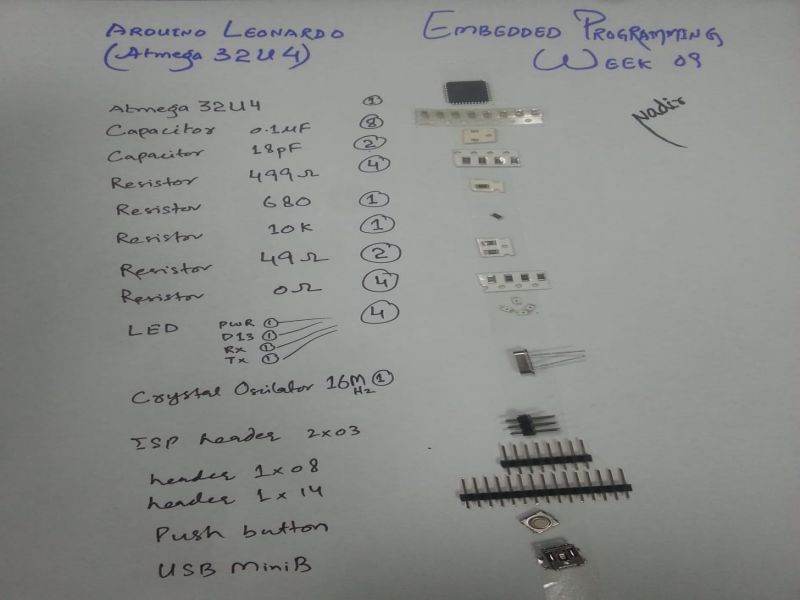 ARDUINO LEONARDO
(Atmega 32U4)
EMBEDDED PROGRAMMING
WEEK 09
Nadir
Atmega 32U4 1
Capacitor 0.1uF 8
Capacitor 18pF 2
Resistor 499Ω 4
Resistor 680 1
Resistor 10K 1
Resistor 49Ω 2
Resistor 0Ω 4
LED 4
PWR 1
D13 1
Rx 1
Tx 1
Crystal Oscilator 16MHz 1
ISP header 2x03
header 1x08
header 1x14
Push button
USB MiniB